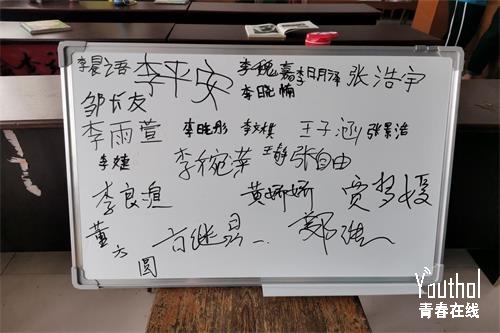 李晨语 李平安 李槐嘉 李明泽 张浩宇
李晓楠
邹长友
李雨萱 李晓彤 李文棋 王子涵 张景浩
李婕 李婉莹 王静 张自由
李良滇 黄娇娇 贾梦媛
董方圆 方继昌 郑浩
Youthol
青春在线